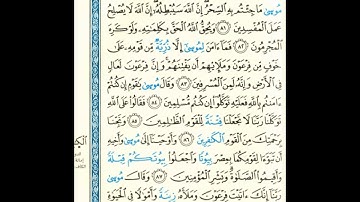 مُوسَىٰ مَا جِئْتُم بِهِ ٱلسِّحْرُ إِنَّ ٱللَّهَ سَيُبْطِلُهُۥٓ إِنَّ ٱللَّهَ لَا يُصْلِحُ
عَمَلَ ٱلْمُفْسِدِينَ ٨١ وَيُحِقُّ ٱللَّهُ ٱلْحَقَّ بِكَلِمَٰتِهِۦ وَلَوْ كَرِهَ
ٱلْمُجْرِمُونَ ٨٢ فَمَآ ءَامَنَ لِمُوسَىٰٓ إِلَّا ذُرِّيَّةٌ مِّن قَوْمِهِۦ عَلَىٰ
خَوْفٍ مِّن فِرْعَوْنَ وَمَلَإِي۟هِمْ أَن يَفْتِنَهُمْ وَإِنَّ فِرْعَوْنَ لَعَالٍ
فِى ٱلْأَرْضِ وَإِنَّهُۥ لَمِنَ ٱلْمُسْرِفِينَ ٨٣ وَقَالَ مُوسَىٰ يَٰقَوْمِ إِن كُنتُمْ
ءَامَنتُم بِٱللَّهِ فَعَلَيْهِ تَوَكَّلُوٓا۟ إِن كُنتُم مُّسْلِمِينَ ٨٤ فَقَالُوا۟ عَلَى ٱللَّهِ
تَوَكَّلْنَا رَبَّنَا لَا تَجْعَلْنَا فِتْنَةً لِّلْقَوْمِ ٱلظَّٰلِمِينَ ٨٥ وَنَجِّنَا
بِرَحْمَتِكَ مِنَ ٱلْقَوْمِ ٱلْكَٰفِرِينَ ٨٦ وَأَوْحَيْنَآ إِلَىٰ مُوسَىٰ وَأَخِيهِ
أَن تَبَوَّءَا لِقَوْمِكُمَا بِمِصْرَ بُيُوتًا وَٱجْعَلُوا۟ بُيُوتَكُمْ قِبْلَةً
وَأَقِيمُوا۟ ٱلصَّلَوٰةَ وَبَشِّرِ ٱلْمُؤْمِنِينَ ٨٧ وَقَالَ مُوسَىٰ
رَبَّنَآ إِنَّكَ ءَاتَيْتَ فِرْعَوْنَ وَمَلَأَهُۥ زِينَةً وَأَمْوَٰلًا فِى ٱلْحَيَوٰةِ